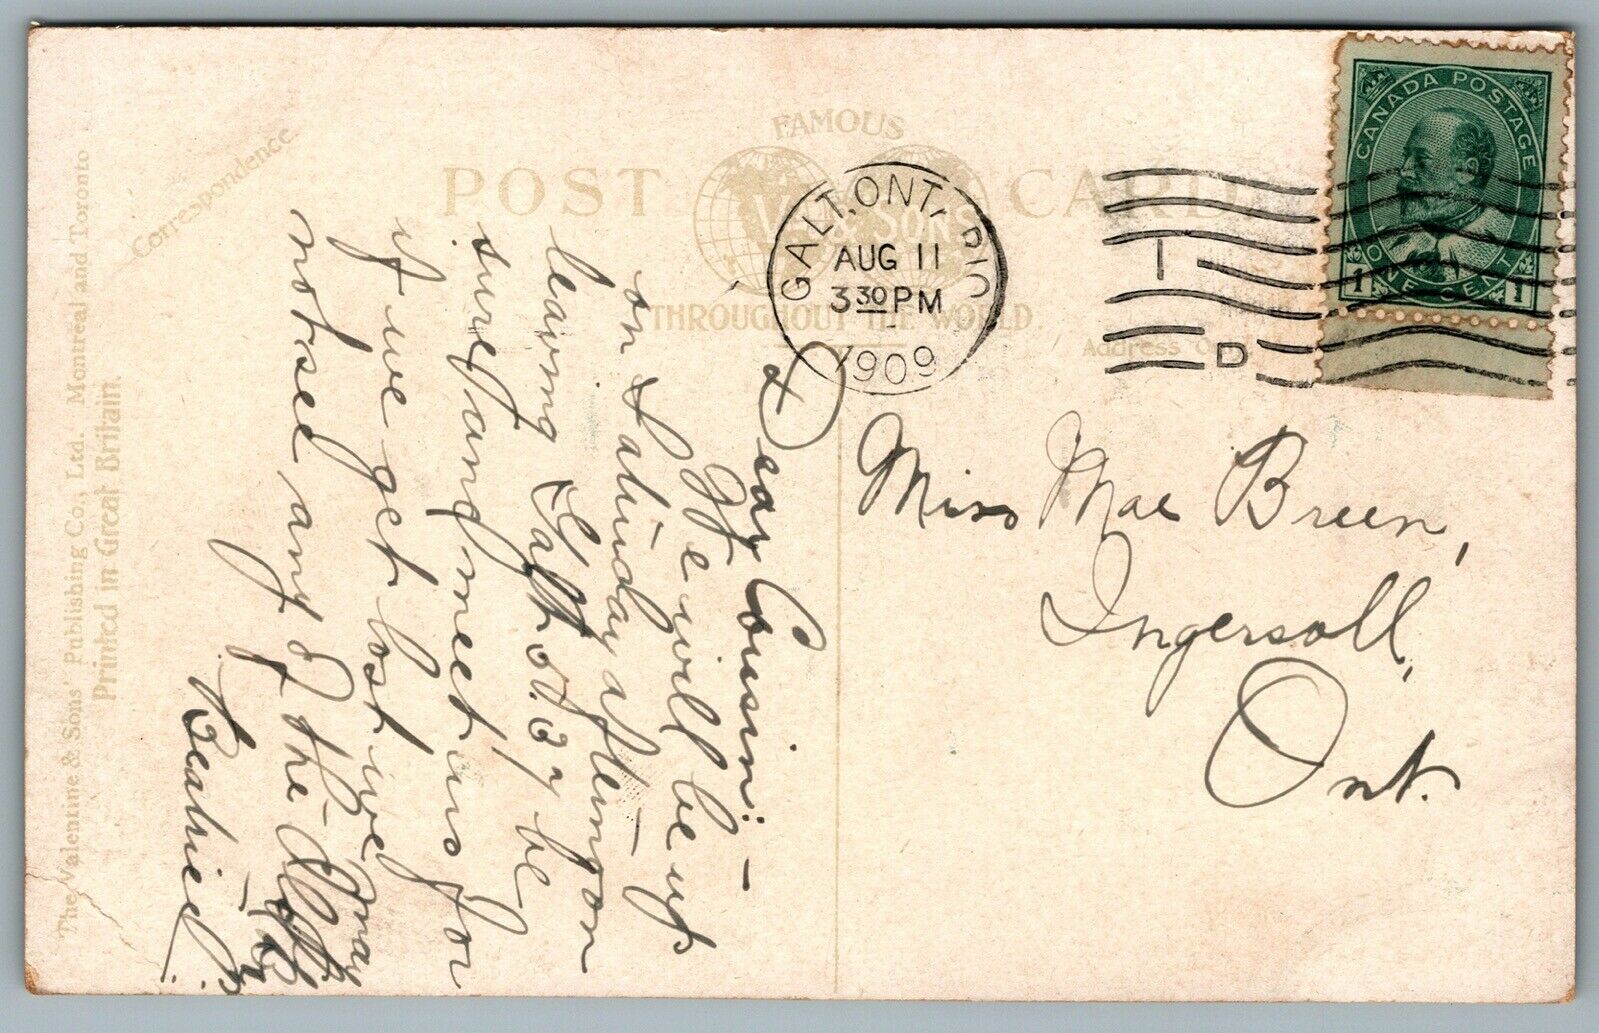 The Valentine & Sons' Publishing Co., Ltd. Montreal and Toronto
Printed in Great Britain.
Correspondence
FAMOUS
POST CARD
V. & SONS
THROUGHOUT THE WORLD
Address Only
GALT, ONTARIO
AUG 11
3 30 PM
1909
I
D
CANADA POSTAGE
1 ONE CENT 1
Dear Cousin: –
We will be up
on Saturday afternoon –
leaving Galt at 3.27 be
sure and meet us for
if we get lost we may
not see any of the
Miss Mae Breen,
Ingersoll,
Ont.